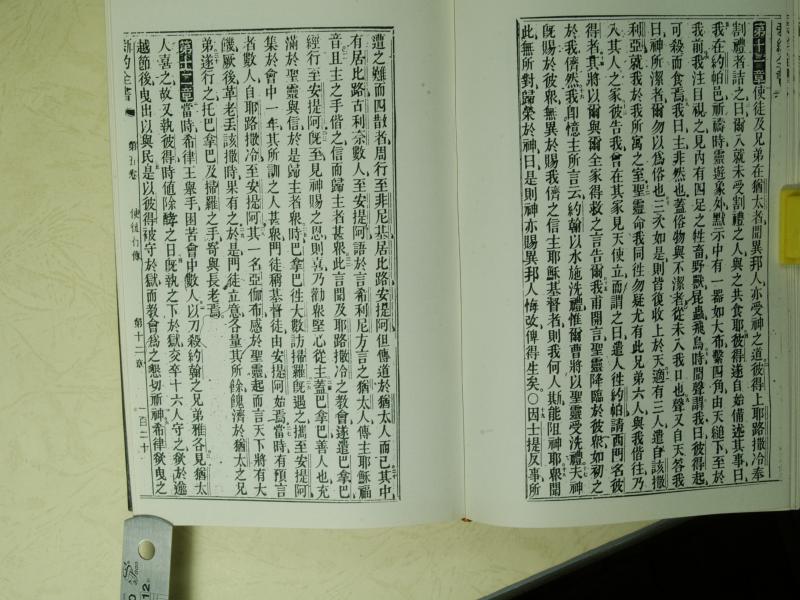 第十一章使徒及兄弟在猶太者聞異邦人亦受神之道彼得上耶路撒冷奉
割禮者詰之曰爾入就未受割禮之人與之共食耶彼得遂自始備述其事曰
我在約帕邑祈禱時靈遊象外默示中有一器如大布繫四角由天縋下至於
我前我注目視之見內有四足之牲畜野獸昆蟲飛鳥時聞聲謂我曰彼得起
可殺而食焉我曰主非然也蓋俗物與不潔者從未入我口也聲又自天答我
曰神所潔者爾勿以為俗也三次如是則皆復收上於天適有三人遣自該撒
利亞就我於我所寓之室聖靈命我同徃勿疑尤有此兄弟六人與我偕徃乃
入其人之家彼告我曾在其家見天使立而謂之曰遣人徃約帕請西門名彼
得者其將以爾與爾全家得救之言告爾我甫開言聖靈降臨於彼衆如初之
於我儕然我卽憶主所言云約翰以水施洗禮惟爾曹將以聖靈受洗禮夫神
既賜於彼衆無異於賜我儕之信主耶穌基督者則我何人斯能阻神耶衆聞
此無所對歸榮於神曰是則神亦賜異邦人悔改俾得生矣○因士提反事所
遭之難而四散者周行至非尼基居比路安提阿但傳道於猶太人而已其中
有居比路古利奈數人至安提阿語於言希利尼方言之猶太人傳主耶穌福
音且主之手偕之信而歸主者甚衆此言聞及耶路撒冷之教會遂遣巴拿巴
經行至安提阿既至見神賜之恩則喜乃勸衆堅心從主蓋巴拿巴善人也充
滿於聖靈與信於是歸主者衆時巴拿巴徃大數訪掃羅既遇之攜至安提阿
集於會中一年其所訓之人甚衆門徒稱基督徒由安提阿始焉當時有預言
者數人自耶路撒冷至安提阿其一名亞伽布感於聖靈起而言天下將有大
饑厥後革老丢該撒時果有之於是門徒立意各量其所餘餽濟於猶太之兄
弟遂行之托巴拿巴及掃羅之手寄與長老焉
第十二章當時希律王舉手困苦會中數人以刀殺約翰之兄弟雅各見猶太
人喜之故又執彼得時值除酵之日既執之下於獄交卒十六人守之欲於逾
越節後曳出以與民是以彼得被守於獄而教會為之懇切祈神希律欲曳之
新約全書 第五卷 使徒行傳 第十二章 一百二十
12